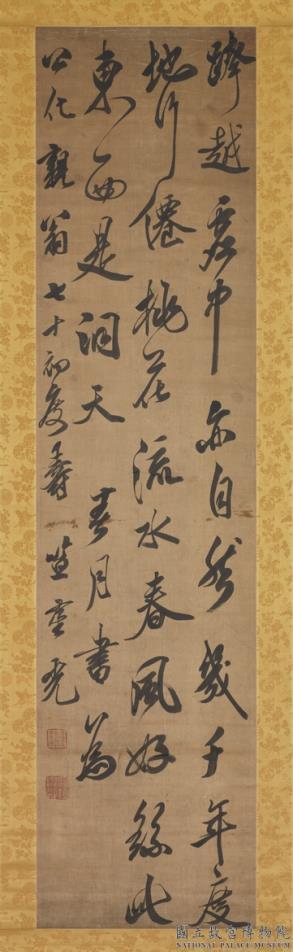 越中亦自然幾千年度
地行僊桃花流水春風好此
東西是洞天 春月書為
公親翁七十初度壽 笪重光
國立故宮博物院
NATIONAL PALACE MUSEUM